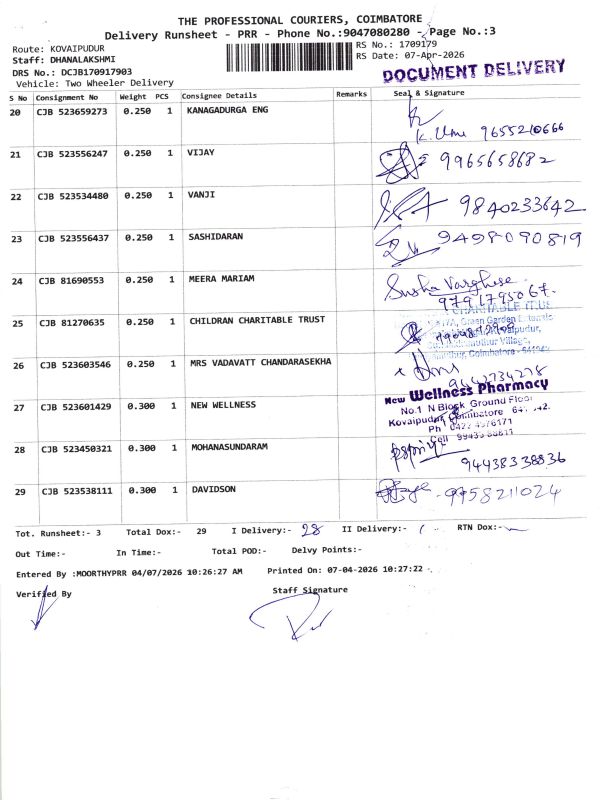 THE PROFESSIONAL COURIERS, COIMBATORE
Delivery Runsheet - PRR - Phone No.:9047080280 - Page No.:3
Route: KOVAIPUDUR
RS No.: 1709179
Staff: DHANALAKSHMI
RS Date: 07-Apr-2026
DRS No.: DCJB170917903
DOCUMENT DELIVERY
Vehicle: Two Wheeler Delivery
S No Consignment No Weight PCS Consignee Details Remarks Seal & Signature
20 CJB 523659273 0.250 1 KANAGADURGA ENG
K. Uma 9655210666
21 CJB 523556247 0.250 1 VIJAY 9965658682
22 CJB 523534480 0.250 1 VANJI 9840233642
23 CJB 523556437 0.250 1 SASHIDARAN 9498090819
24 CJB 81690553 0.250 1 MEERA MARIAM Susha Varghese
9791795067.
25 CJB 81270635 0.250 1 CHILDRAN CHARITABLE TRUST
Coimbatore
26 CJB 523603546 0.250 1 MRS VADAVATT CHANDARASEKHA
9442734278
27 CJB 523601429 0.300 1 NEW WELLNESS
New Wellness Pharmacy
No.1 N Block Ground Floor
Kovaipudur Coimbatore
Ph 0422
Cell
28 CJB 523450321 0.300 1 MOHANASUNDARAM
94438338836
29 CJB 523538111 0.300 1 DAVIDSON 9758211024
Tot. Runsheet:- 3 Total Dox:- 29 I Delivery:- 28 II Delivery:- 1 RTN Dox:-
Out Time:- In Time:- Total POD:- Delvy Points:-
Entered By :MOORTHYPRR 04/07/2026 10:26:27 AM Printed On: 07-04-2026 10:27:22
Verified By Staff Signature